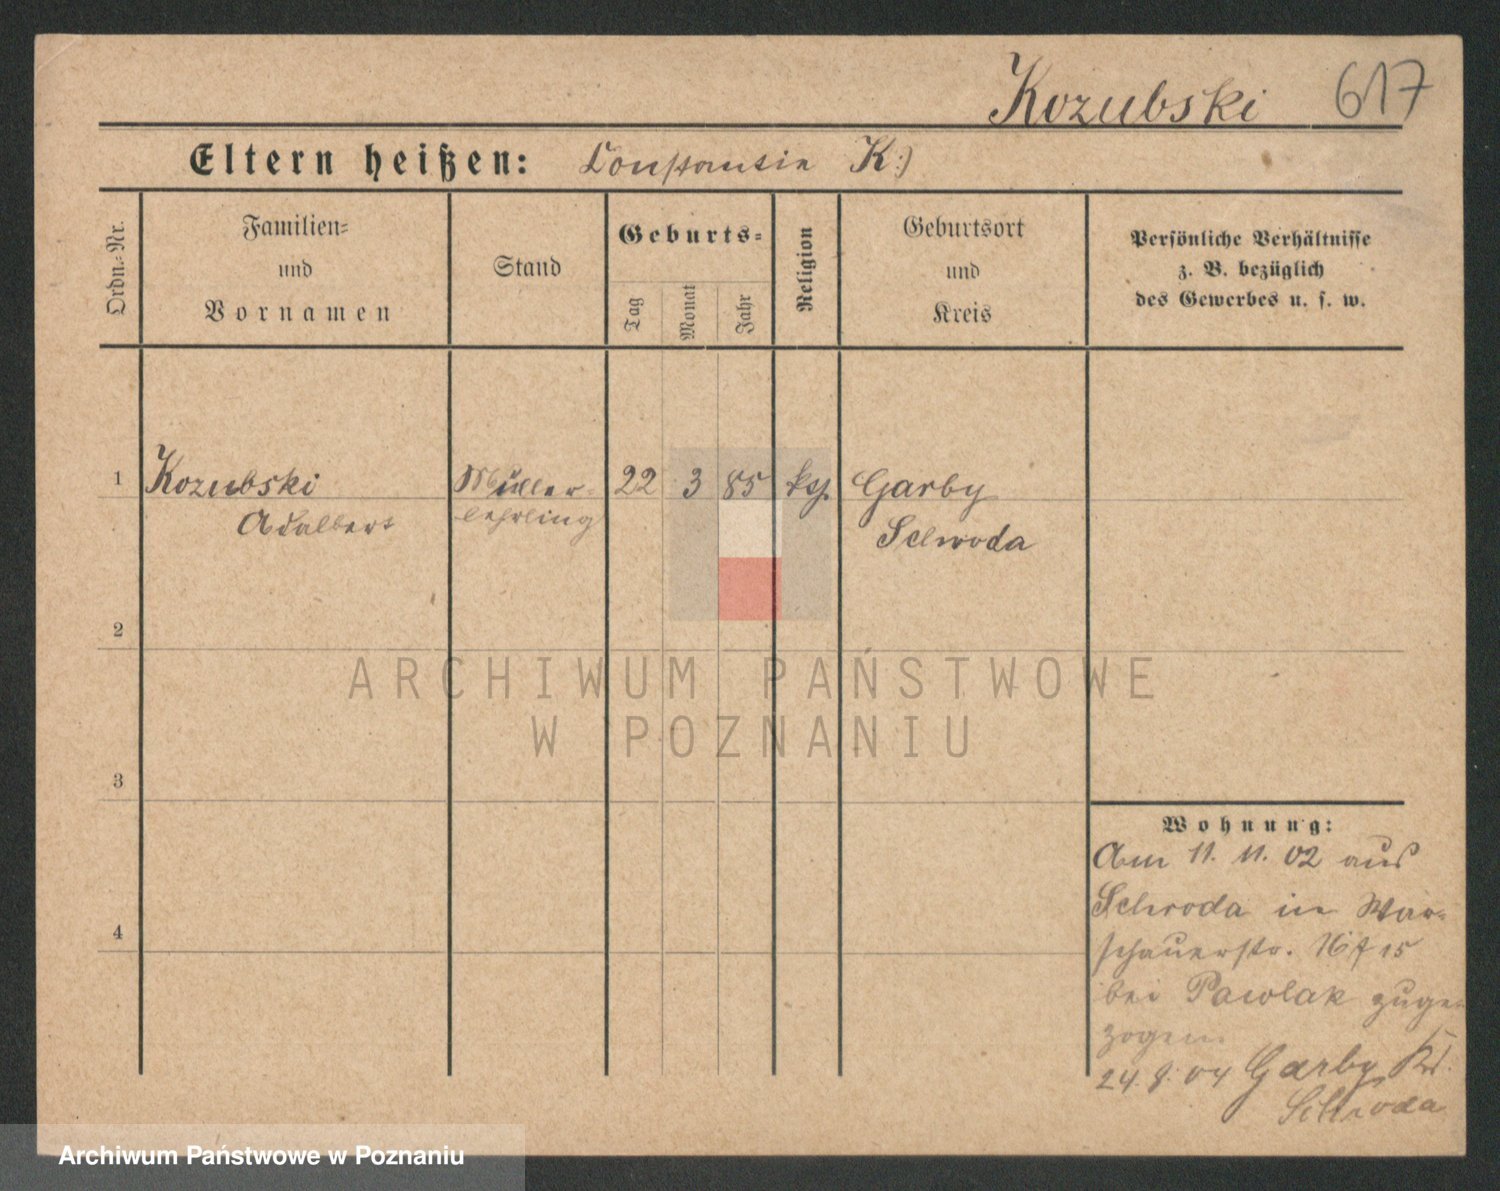 Kozubski 617
Eltern heißen: Constantin K:)
Ordn.-Nr.
Familien=
und
Vornamen
Stand
Geburts=
Tag
Monat
Jahr
Religion
Geburtsort
und
Kreis
Persönliche Verhältnisse
z. B. bezüglich
des Gewerbes u. s. w.
1 Kozubski Müller- 22 3 85 Garby
Adalbert lehrling Schroda
2
ARCHIWUM PAŃSTWOWE
W POZNANIU
3
4
Wohnung:
Am 11. 11. 02 aus
Schroda in War-
schauerstr. 15
bei Pawlak zuge-
zogen.
24. 9. 04 Garby Kr.
Schroda
Archiwum Państwowe w Poznaniu